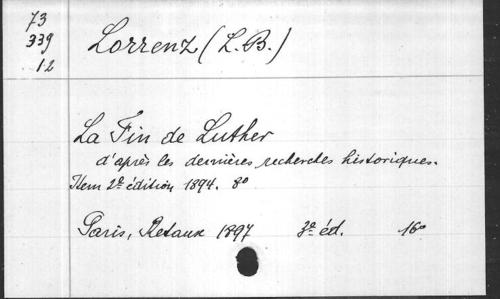 73
339
12
Lorrenz (L.B.)
La Fin de Luther
d'après les dernières recherches historiques.
Item 2e édition 1894. 8º
Paris, Retaux 1897 3e éd. 16º